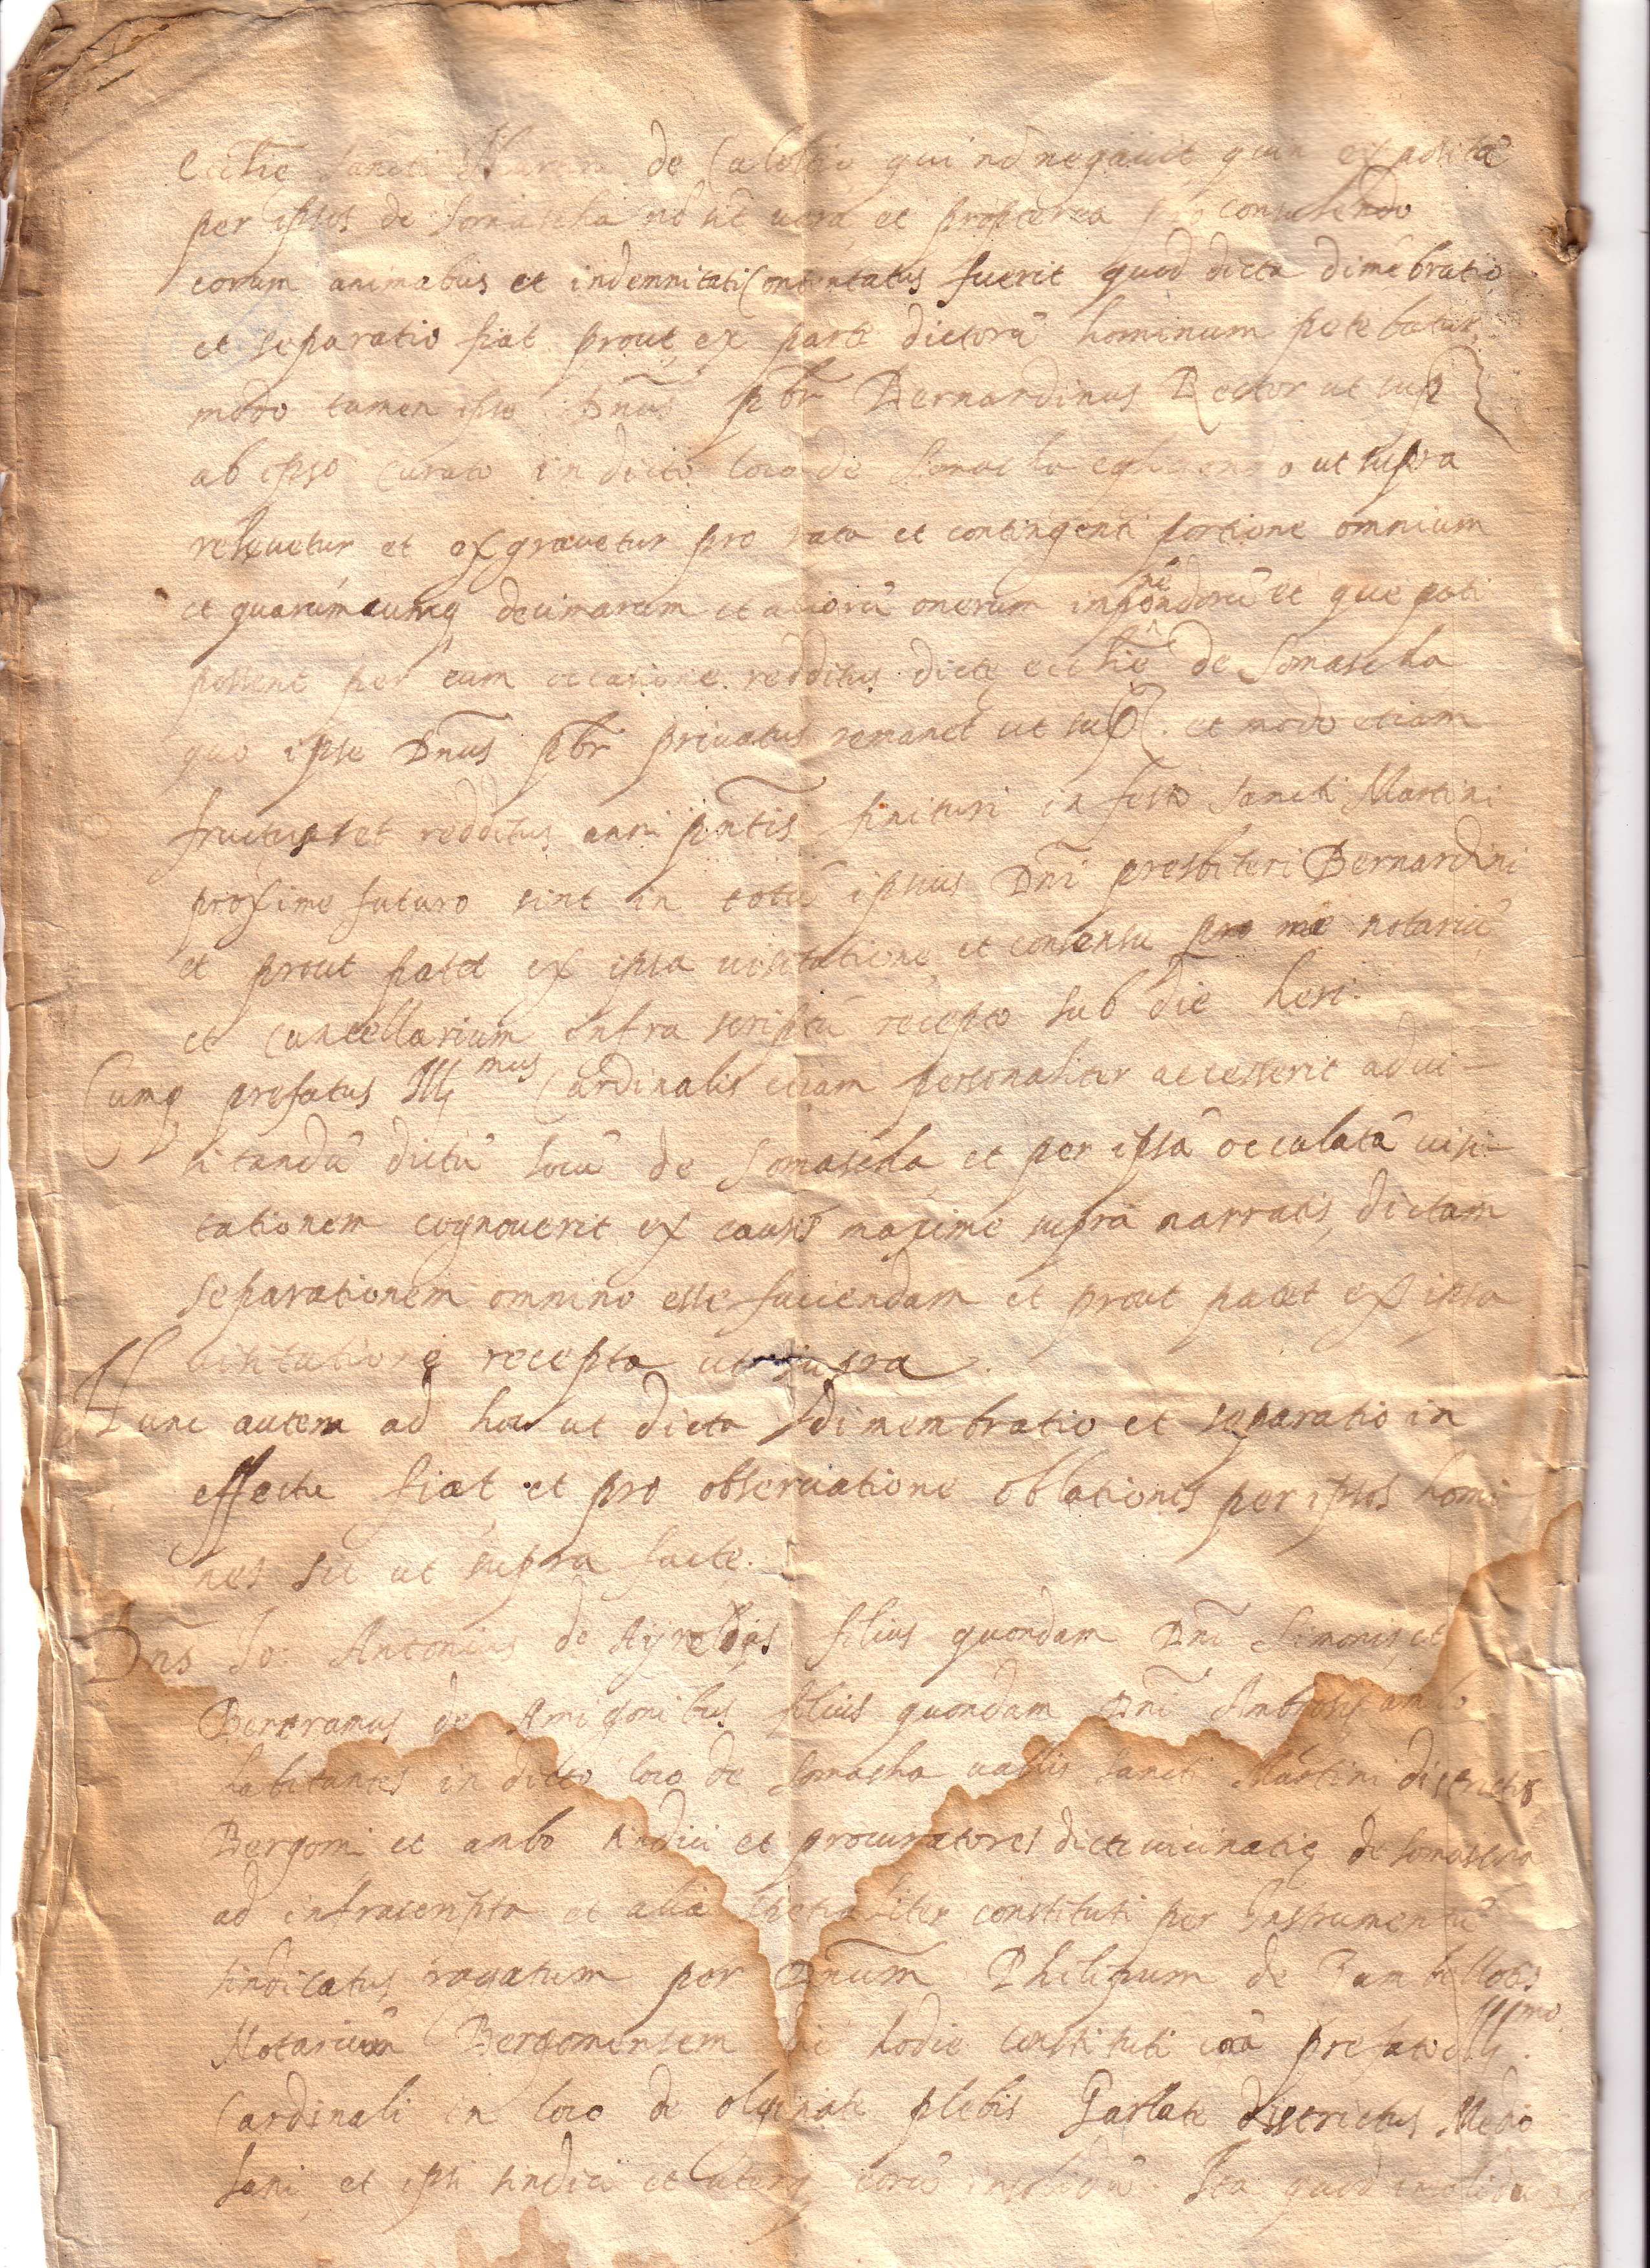 Ecclie Sancti de Caloltio qui nō negavit quin exposita
per ipsos de Somascha nō sīt vera et propterea pro consulendo
eorum animabus et indemnitati Contentatus fuerit quod dicta dimēbratio
et separatio fiat prout ex parte dictorū hominum petebatur
modo tamen ipse Dnus pbr Bernardinus Rector ut sup
ab ipso Curato in dicto loco de Somascha ut supra
relevetur et exgravetur pro rata et contingenti portione omnium
et quarumcumq decimarum et aliorū onerum imponēdorū et que pati
possent per eum occasione redditus dictę ecclie de Somascha
quo ipse Dnus pbr privatus remanet ut sup. et modo etiam
fructus et redditus anni pntis finituri in festo Sancti Martini
proxime futuro sint in totū ipsius Dni presbiteri Bernardini
et prout patet ex ipsa visitatione et consensu pro me notariū
et Cancellarium infra scriptū recepto sub die heri.
Cumq prefatus Ill mus Cardinalis etiam personaliter accesserit ad vi-
sitandū dictū locū de Somascha et per ipsā occulatā visi-
tationem cognoverit ex causis maxime supra narratis, dictam
separationem omnino esse faciendam et prout patet ex ipsa
visitatione recepta ut supra.
Hunc autem ad hoc ut dicta dimembratio et separatio in
effectu fiat et pro observatione oblationis per ipsos homi
nes sic ut supra facte.
Dns Jo: Antonius de Ayroldis filius quondam Dni Simonis, et
Bertramus de Amigonibus filius quondam Dni Ambrosij ambo
habitantes in dicto loco de Somascha vallis Sancti Martini districtus
Bergomi et ambo sindici et procuratores dicte vicinatię de Somascha
ad infrascripta et alia spetialiter constituti per Instrumentū
sindicatus rogatum per Dnum Philipum de
Notarium Bergomensem die hodie constituti corā prefato Ill mo.
Cardinali in loco de olginate plebis Garlate districtus Medio
lani, et ipsi sindici et uterq eorū insolidū. Ita quod insolidū